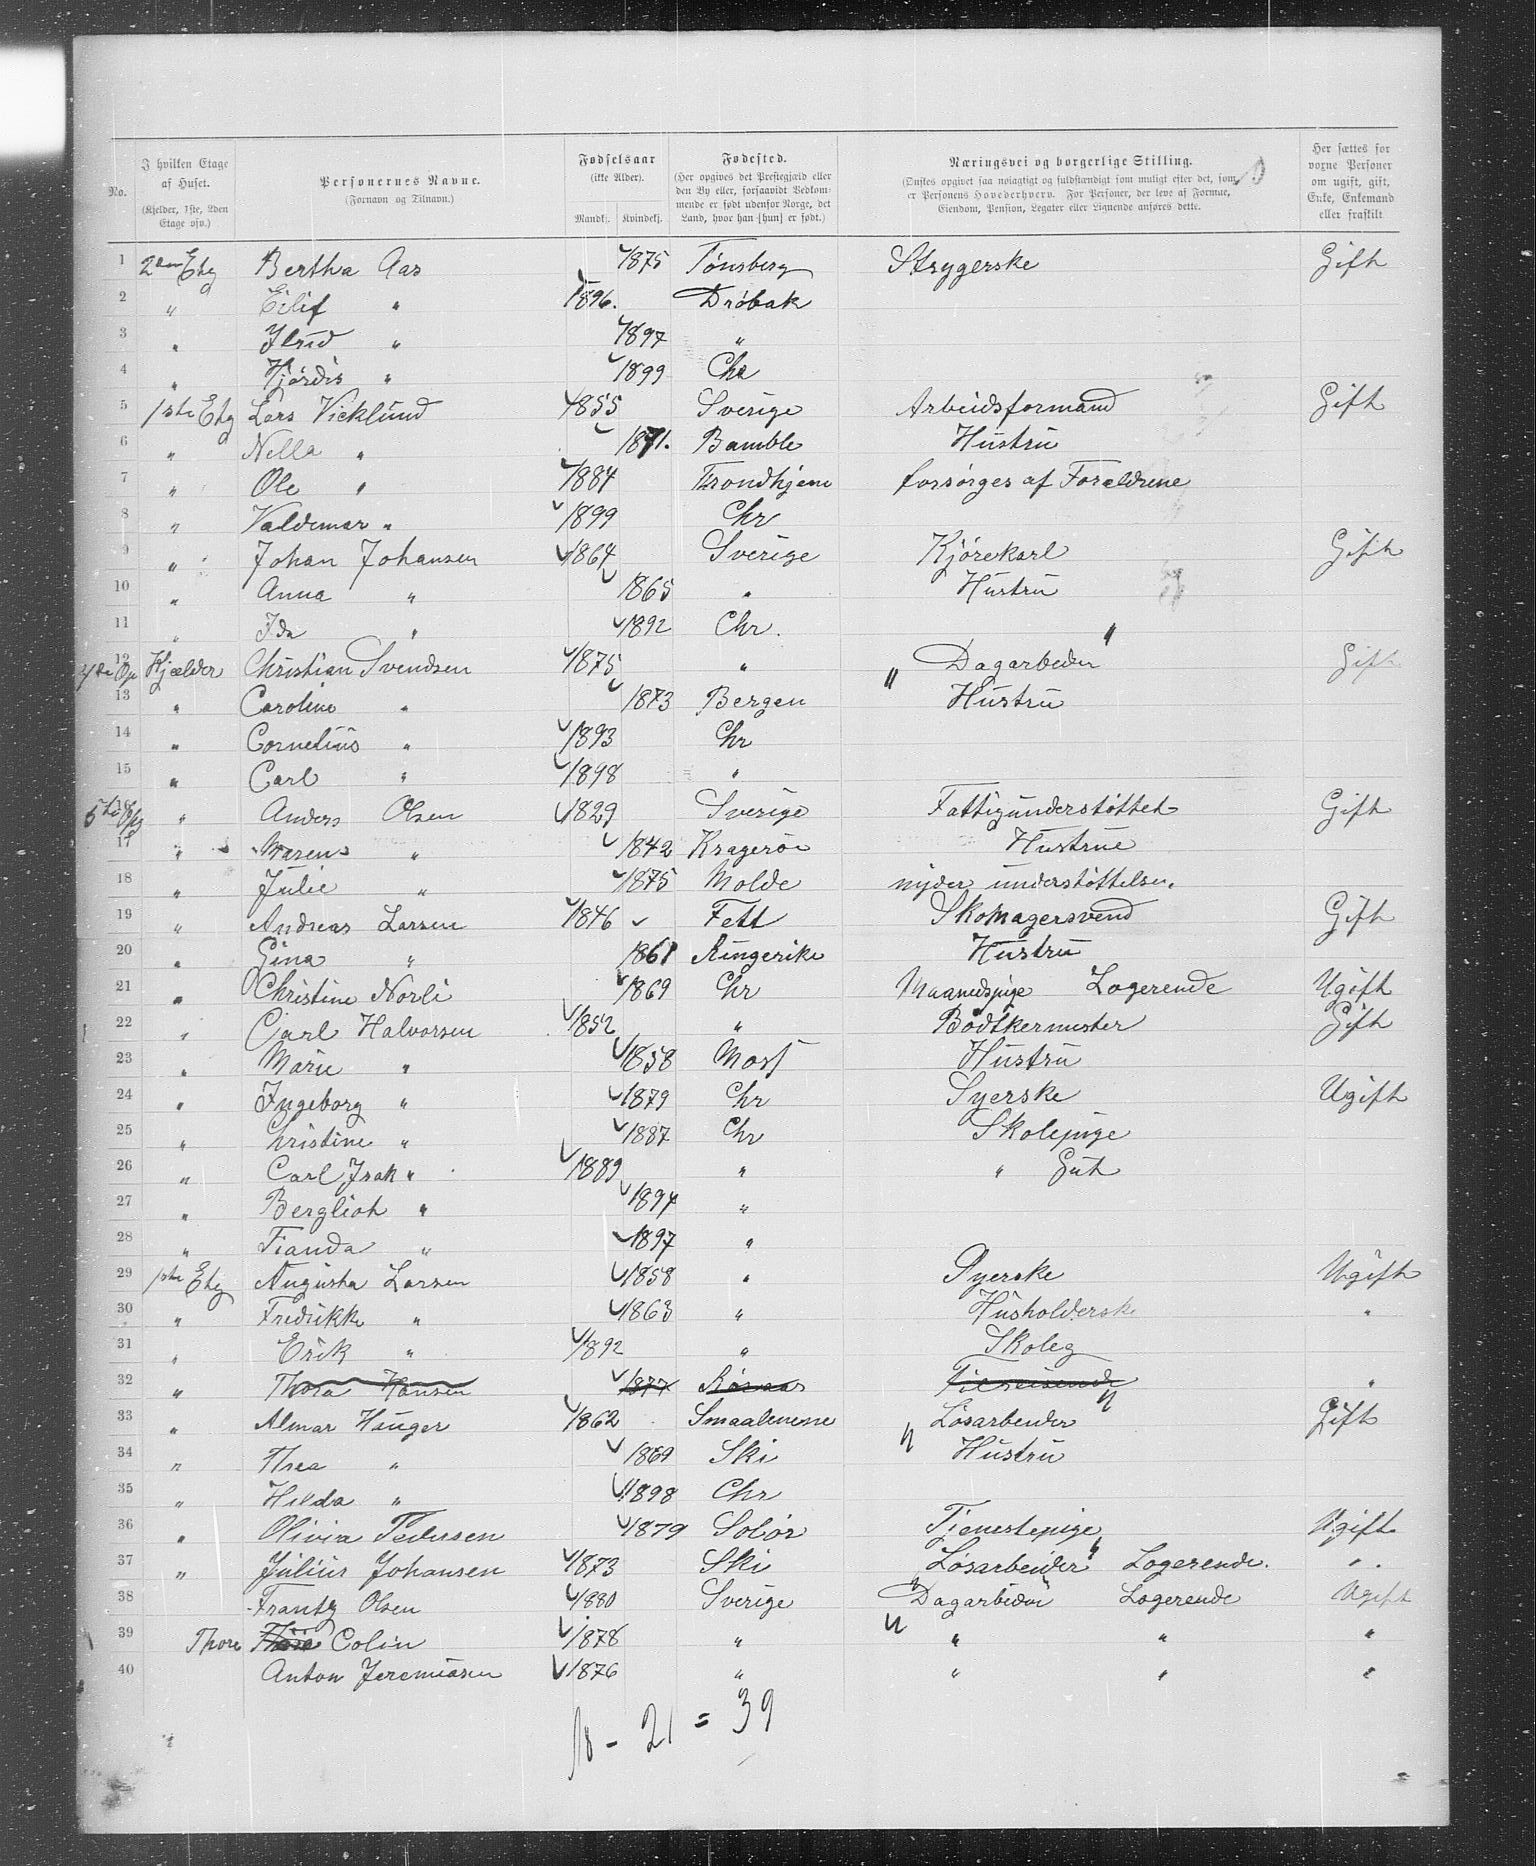 No. | I hvilken Etage af Huset. (Kjelder, 1ste, 2den Etage osv.) | Personernes Navne. (Fornavn og Tilnavn.) | Fødselsaar (ikke Alder). Mandkj. Kvindekj. | Fødested. (Her opgives det Prestegjæld eller den By eller, forsaavidt Vedkommende er født udenfor Norge, det Land, hvor han [hun] er født.) | Næringsvei og borgerlige Stilling. (Ønskes opgivet saa nøiagtigt og fuldstændigt som muligt efter det, som er Personens Hovederhverv. For Personer, der leve af Formue, Eiendom, Pension, Legater eller Lignende anføres dette. | Her sættes for voxne Personer om ugift, gift, Enke, Enkemand eller fraskilt
1 2den Etg Bertha Aas 1875 Tønsberg Strygerske Gift
2 " Eilif " 1896. Drøbak
3 " " 1897 "
4 " Hjørdis " 1899 Chr
5 1ste Etg Lars Vicklund 1855 Sverige Arbeidsformand Gift
6 " Nella " 1871. Bamble Hustru
7 " Ole " 1884 Trondhjem forsørges af Forældrene
8 " Valdemar " 1899 Chr
9 " Johan Johansen 1864 Sverige Kjørekarl Gift
10 " Anna " 1865 " Hustru
11 " Ida " 1892 Chr.
12 4de Op Kjælder Christian Svendsen 1875 " Dagarbeder Gift
13 " Caroline " 1873 Bergen Hustru
14 " Cornelius " 1893 Chr
15 " Carl " 1898 "
16 5te Opg " Anders Olsen 1829 Sverige Fattigunderstøttet Gift
17 " Maren " 1842 Kragerøe Hustrue
18 " Julie " 1875 Molde nyder understøttelse.
19 " Andreas Larsen 1846 Fett Skomagersvend Gift
20 " Gina " 1861 Ringerike Hustru
21 " Christine Norli 1869 Chr Maanedspige Logerende Ugift
22 " Carl Halvorsen 1852 " Bødtkermester Gift
23 " Marie " 1858 Moss Hustru
24 " Ingeborg " 1879 Chr Syerske Ugift
25 " Christine " 1887 Chr Skolepige
26 " Carl Isak " 1889 " " Gut
27 " Bergliot " 1894 "
28 " Fianda " 1897 "
29 1ste Etg Augusta Larsen 1858 " Syerske Ugift
30 " Fredrikke " 1863 " Husholderske "
31 " Erik " 1892 " Skoleg
32 " Thora Hansen 1877 Røraas "
33 " Almar Hauger 1862 Smaalenene Løsarbeider Gift
34 " Thea " 1869 Ski Hustru
35 " Hilda " 1898 Chr
36 " Olivia Pedersen 1879 Solør Tjenestepige Ugift
37 " Julius Johansen 1873 Ski Løsarbeider Logerende. "
38 Frantz Olsen 1880 Sverige Dagarbeider Logerende Ugift
39 Thore Colin 1878 " " " "
40 Anton Jeremiasen 1876 " " " "
18 - 21 = 39